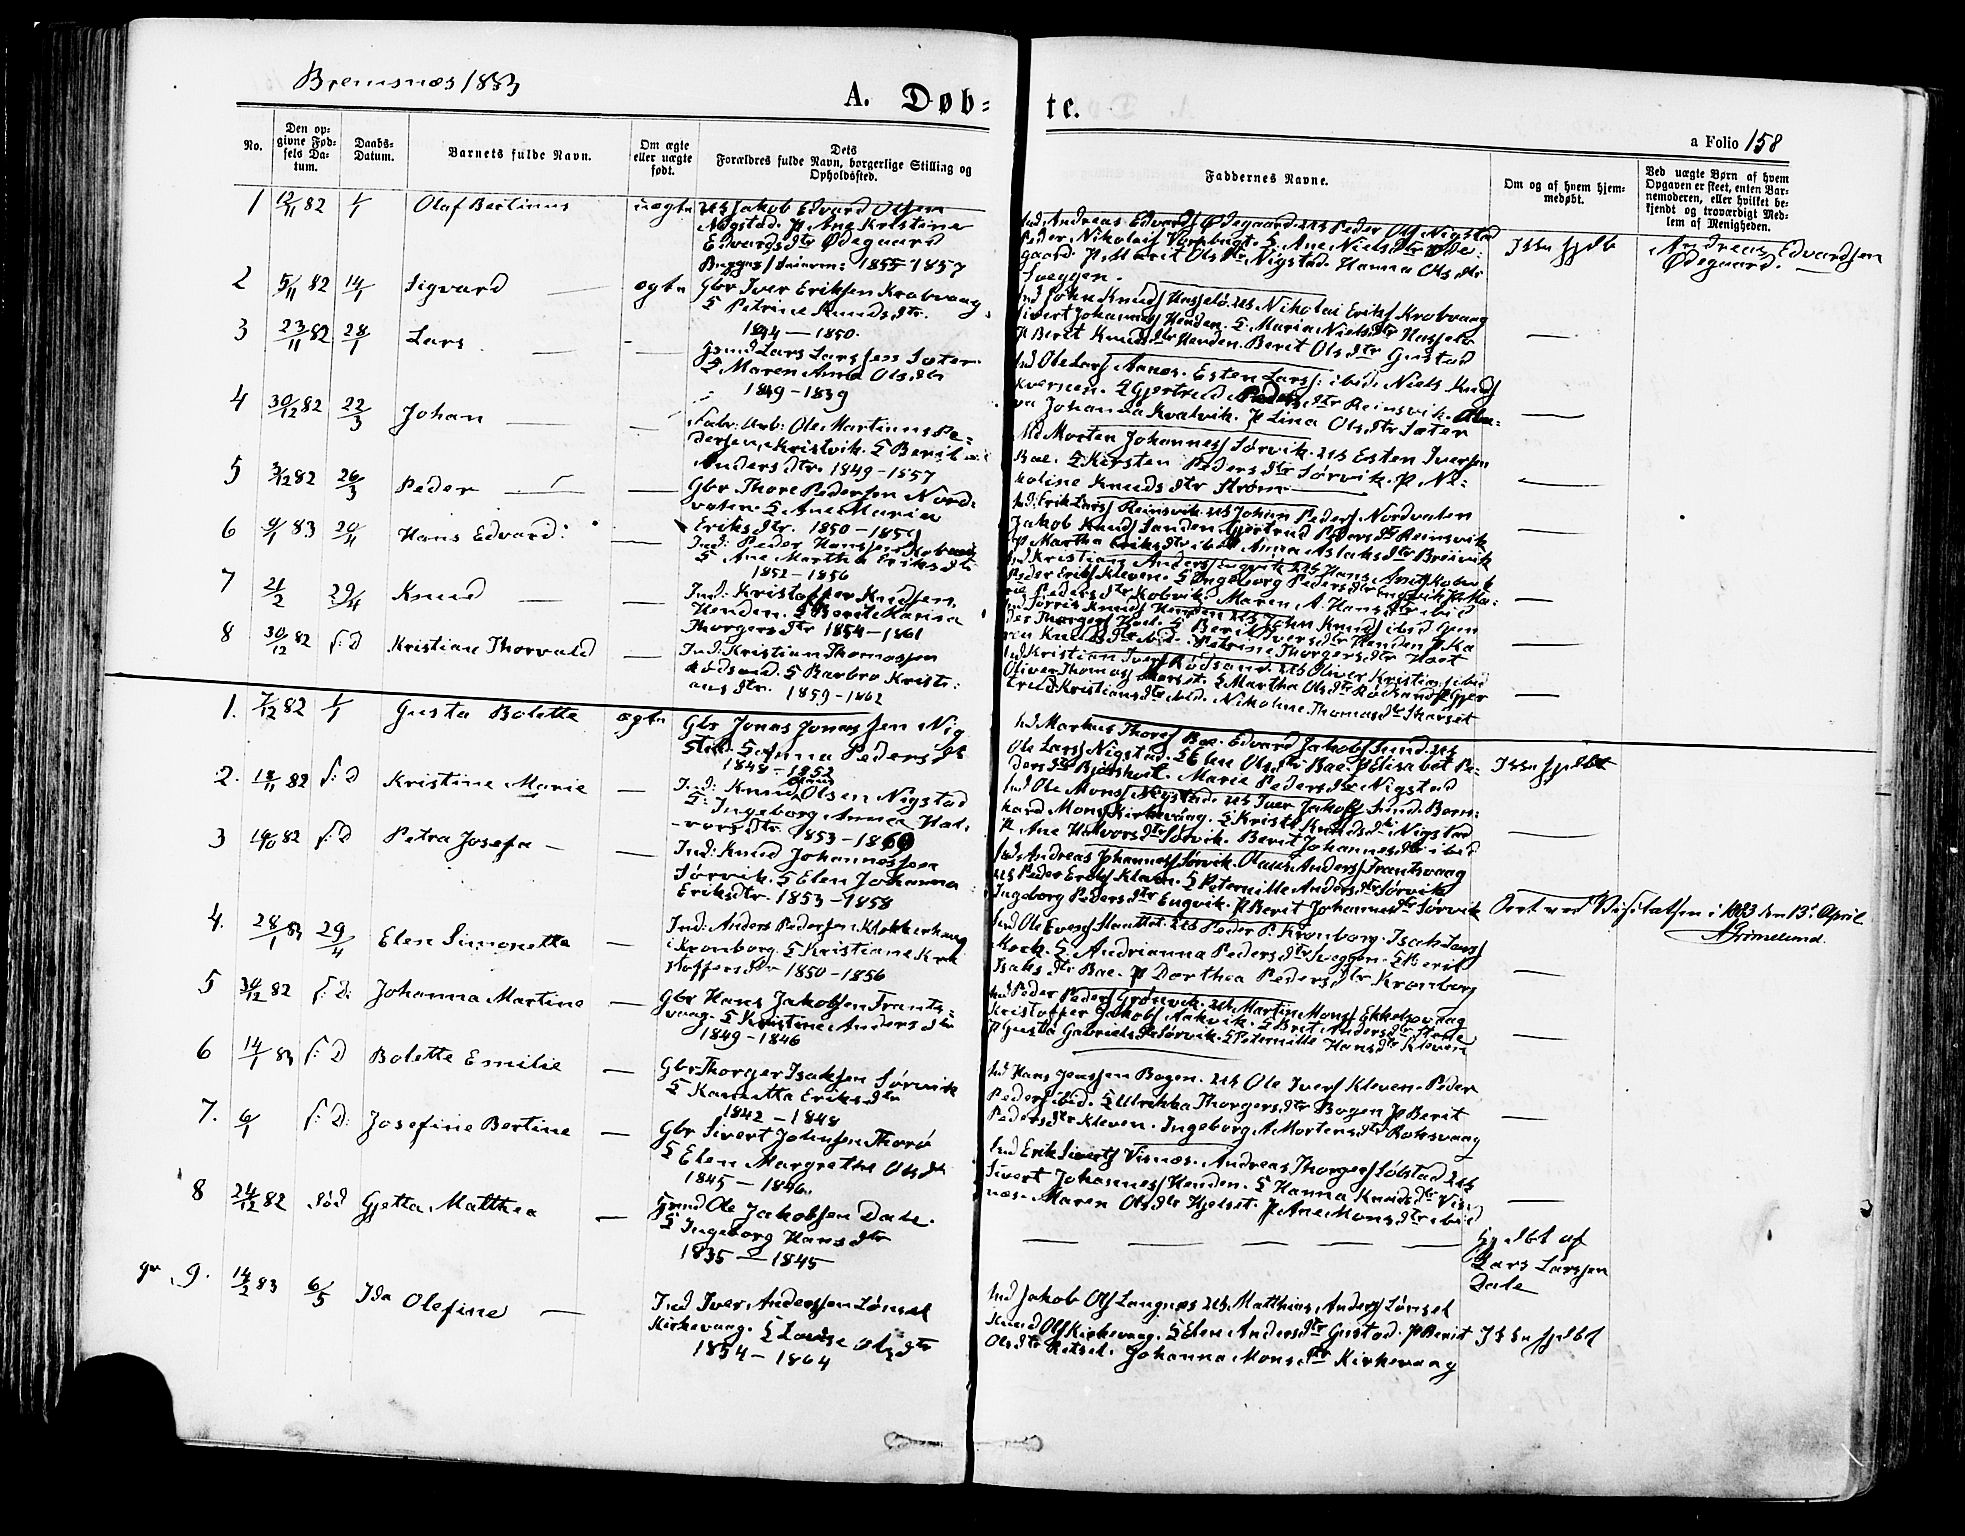 Bremsnæs 1883
A. Døb-
te.
a Folio 158
No.
Den op-
givne Fød-
sels Da-
tum.
Daabs-
Datum.
Barnets fulde Navn.
Om ægte
eller uægte
født.
Dets
Forældres fulde Navn, borgerlige Stilling og
Opholdssted.
Faddernes Navne.
Om og af hvem hjem-
medøbt.
Ved uægte Børn af hvem
Opgaven er skeet, enten Bar-
nemoderen, eller hvilket be-
kjendt og troværdigt Med-
lem af Menigheden.
1 12/11 82 1/1 Olaf Bertinus uægte Ub Jakob Edvard Olsen
Nigstad. P Ane Kristine
Edvardsdtr Ødegaard
1855-1857
Ind Andreas Edvards Ødegaard. Ub Peder Ols Nigstad
Peder Nikolais. Ane Nielsdtr Øde-
gaard. P Marit Olsdtr Nigstad. Hanna Olsdtr
Sveggen.
Ikke hjdbt
Andreas Edvardsen
Ødegaard.
2 5/11 82 14/1 Sigvard — ægte Gbr Iver Eriksen Krobvaag
S Petrine Knudsdtr.
1844 — 1850.
Ind John Knuds Hasselø. Ub Nikolai Eriks Krobvaag
Sivert Johannes Henden. S Maria Nielsdtr Hasselø
P Berit Knudsdtr Henden. Berit Olsdtr Gustad
3 23/11 82 28/1 Lars — — Gmd Lars Larssen Sæter
S Maren Anna Olsdtr
1849 - 1839
Ind Ole Lars Aanæs. Esten Larss: ibid. Niels Knuds
Kvernen. S Gjertrud Pedersdtr Reinsvik.
Johanna Kvalvik. P Lina Olsdtr Sæter
4 30/12 82 22/3 Johan — — Fabr: Arb: Ole Martinus Pe-
dersen, Kristvik. S Berit
Andersdtr. 1849 - 1857
Ind Morten Johanness Sørvik. Ub Esten Iversen
Bae. S Kirsten Pedersdtr Sørvik. P Ni-
koline Knudsdtr Strøm
5 3/12 82 26/3 Peder — — Gbr Thore Pedersen Nord-
vaten. S Ane Maria
Eriksdtr. 1850 - 1850
Ind: Erik Lars Reinsvik. Ub Johan Peders Nordvaten
Jakob Knuds Sanden. Gjertrud Pedersdtr Reinsvik
P Martha Eriksdtr ibid Anna Aslaksdtr Breivik
6 9/1 83 20/4 Hans Edvard: — Ind: Peder Hanssen Kobvik
S Ane Martha Eriksdtr
1852 - 1856
Ind Kristian Anders Engvik. Ub Hans Kobvik
Peder Eriks Kleven. S Ingeborg Pedersdtr Engvik
Pedersdtr Kobvik. Maren A. Hansdtr ibid
7 21/2 29/4 Knud — — Ind: Kristoffer Knudsen,
Henden. S Berit Marina
Thorgersdtr 1854 - 1861
Ind Sørris Knuds Henden. Ub John Knuds ibid
der Thorgers Hoel. S Berit Iversdtr Henden P Ka
ren Knudsdtr ibid. Petrine Thorgersdtr Hoel
8 30/12 82 s: D Kristian Thorvald — Ind: Kristian Thomassen
Rødsand. S Barbro Kristi-
ansdtr. 1859 - 1862
Ind Kristian Ivers Rødsand. Ub Oliver Kristians ibid
Oliver Thomass Storset. S Martha Olsdtr Rødsand P Gjer
trud Kristiansdtr ibid. Nikoline Thomasdtr Storset
1. 7/12 82 1/1 Gusta Bolette ægte Gbr Jonas Jonassen Nig
stad. S Anna Pedersdtr
1848 - 1852
Ind Markus Thores Bae. Edvard Jakobs Sund. Ub
Ole Lars Nigstad. S Elen Olsdtr Bae. P Elisabet Pe-
dersdtr. Marie Pedersdtr Nigstad
Ikke hjdbt
2. 18/11 82 s: D Kristine Marie — Ind: Knud Olsen Nigstad
S: Ingeborg Anna Hal-
vorsdtr. 1853 - 1860
Ind Ole Mons Nigstad. Ub Iver Jakobs Sund. Bern-
hard Mons Kirkevaag. S Kristi Knudsdtr Nigstad
P Ane Halvorsdtr Sørvik. Berit Johannesdtr ibid
3 14/10 82 s: D Petra Josefa — — Ind: Knud Johannessen
Sørvik. S Elen Johanna
Eriksdtr. 1853 - 1858
Ind: Andreas Johanness Sørvik. Olaus Anders Trantvaag
Ub Peder Eriks Kleven. S Peternille Andersdtr Sørvik
Ingeborg Pedersdtr Engvik. P Berit Johannesdtr Sørvik
Seet ved Visitatsen i 1883 den 13d April
AGrimelund.
4. 28/1 83 29/4 Elen Simonette — Ind: Anders Pedersen Klokkerhaug
i Kronborg. S Kristiane Kri
stoffersdtr 1850 - 1856
Ind Ole Evens. Ub Peder P. Kronborg. Isak Lars
Koch. S Andrianna Pedersdtr Sveggen. S Berit
Isaksdtr Bae. P Dorthea Pedersdtr Kronborg
5 30/12 82 s: D: Johanna Martine — Gbr Hans Jakobsen Trants-
vaag. S Kristine Andersdtr
1849 - 1846
Ind Peder Peders Grønvik. Ub Martin Mons Ekkelsvaag
Kristoffer Jakobs Aakvik. S Brit Andersdtr
P Gusta Gabrielsdtr Sørvik. S Peternille Hansdtr Kleven
6 14/1 83 s: D Bolette Emilie — Gbr Thorger Isaksen Sørvik
S Kanutta Eriksdtr
1842 - 1848
Ind Hans Jenssen Bogen. Ub Ole Ivers Kleven. Peder
Peders ibid. S Ulrikka Thorgersdtr Bogen P Berit
Pedersdtr Kleven. Ingeborg A Mortensdtr Roksvaag
7. 6/1 s: D: Josefine Bertine — Gbr Sivert Johnsen Thorø
S Elen Margrethe Olsdtr
1845 - 1846.
Ind Erik Siverts Visnæs. Andreas Thorgers Løbstad Ub
Sivert Johanness Henden. S Hanna Knudsdtr Vis-
næs. Maren Olsdtr Hjelset. P Ane Monsdtr ibid
8 24/12 82 død Gjetta Matthea — Gmd Ole Jakobsen Dale.
S Ingeborg Hansdtr
1835 — 1845
Hjdbt af
Lars Larssen
Dale
9. 14/2 83 6/5 Ida Olefine — Ind Iver Anderssen Lønset
Kirkevaag. S Lovise Olsdtr
1854 - 1864
Ind Jakob Ols Langnes Ub. Matthias Anders Lønset
Knud Ols Kirkevaag. S Elen Andersdtr Gustad. P Berit
Olsdtr. Johanna Monsdtr Kirkevaag
Ikke hjdbt